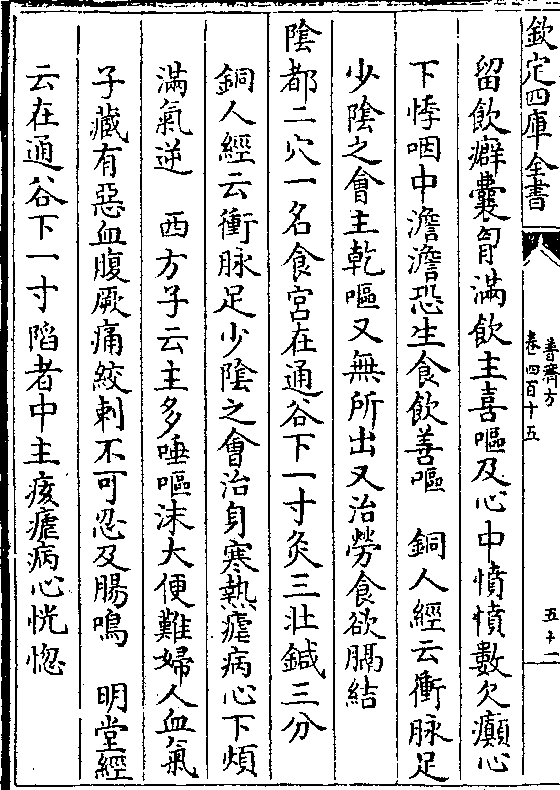 欽定四庫全書
普濟方
卷四百十五
五十二
留飲癖囊胷滿飲主喜嘔及心中憒憒數欠癲心
下悸咽中澹澹恐生食飲善嘔　銅人經云衝脉足
少陰之會主乾嘔又無所出又治勞食欲膈結
陰都二穴一名食宮在通谷下一寸灸三壯鍼三分
銅人經云衝脉足少陰之會治身寒熱瘧病心下煩
滿氣逆　西方子云主多唾嘔沫大便難婦人血氣
子藏有惡血腹厥痛絞刺不可忍及腸鳴　明堂經
云在通谷下一寸陷者中主痎瘧病心恍惚